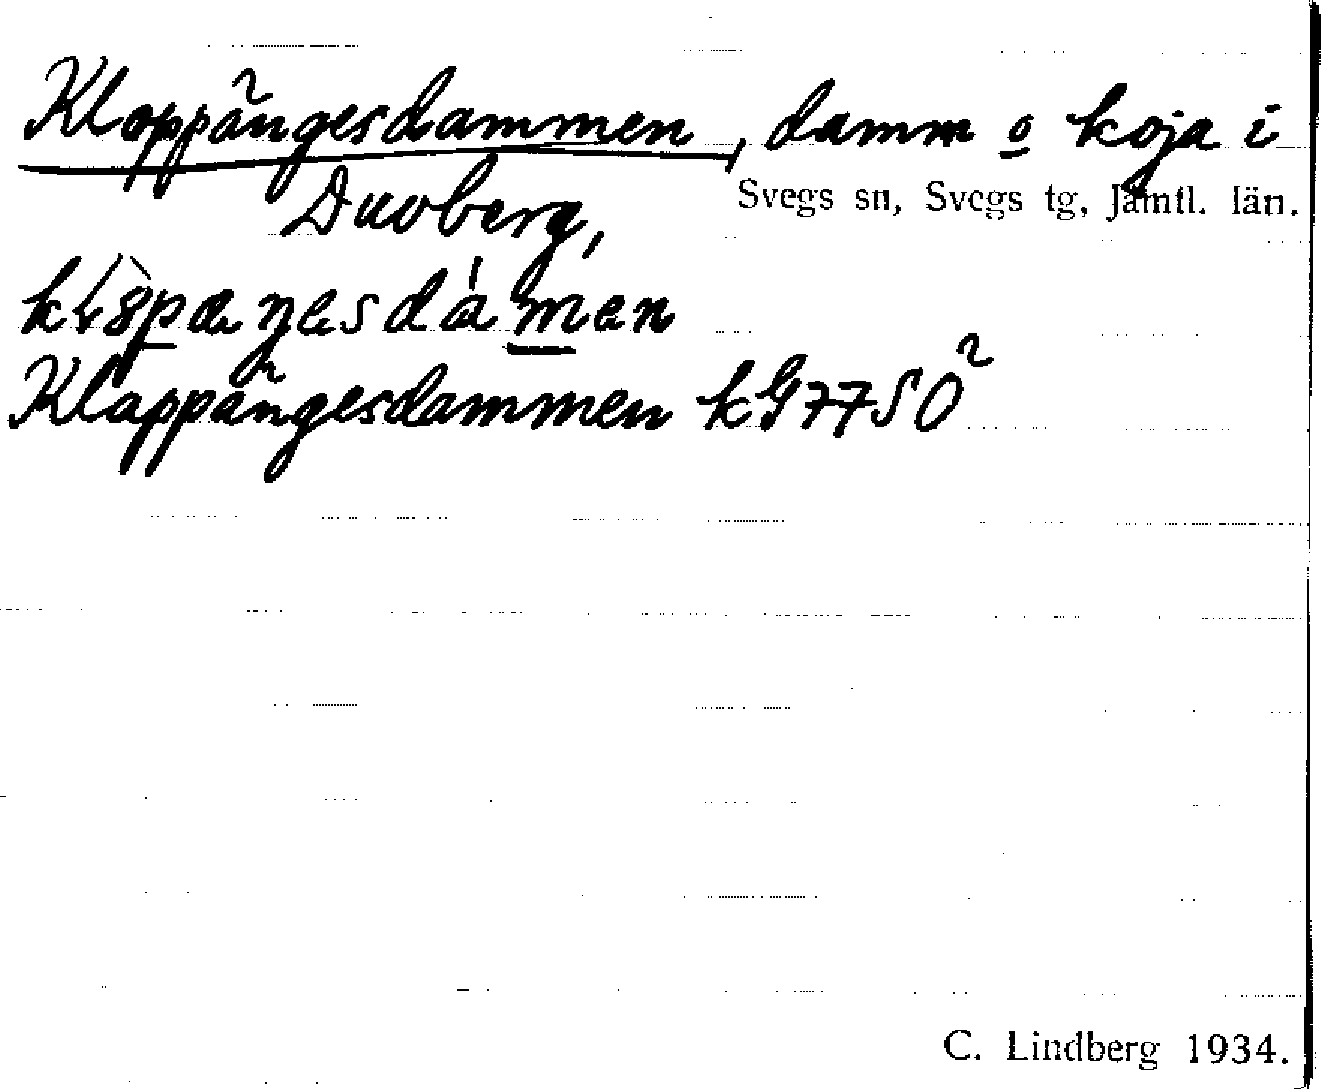 Kloppängesdammen, damm o koja i
Svegs sn, Svegs tg, Jämtl. län.
Duvberg,
Klappängesdammen kG77SO
C. Lindberg 1934.